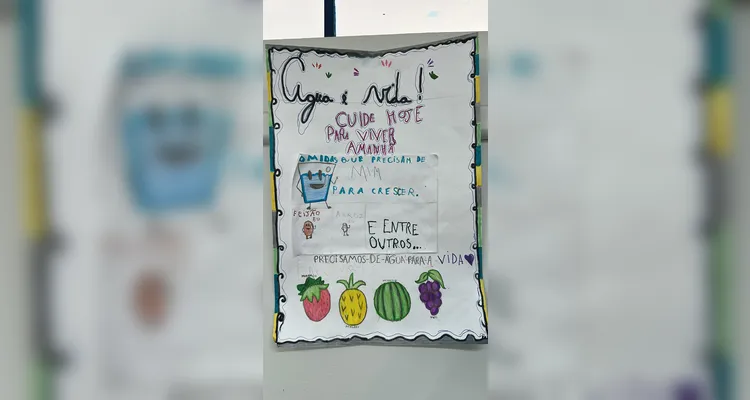 Água é vida!
CUIDE HOJE
PARA VIVER
AMANHÃ
PRECISAM DE
MIM
PARA CRESCER.
FEIJÃO
E ENTRE
OUTROS...
PRECISAMOS-DE-AGUA-PARA-A-VIDA